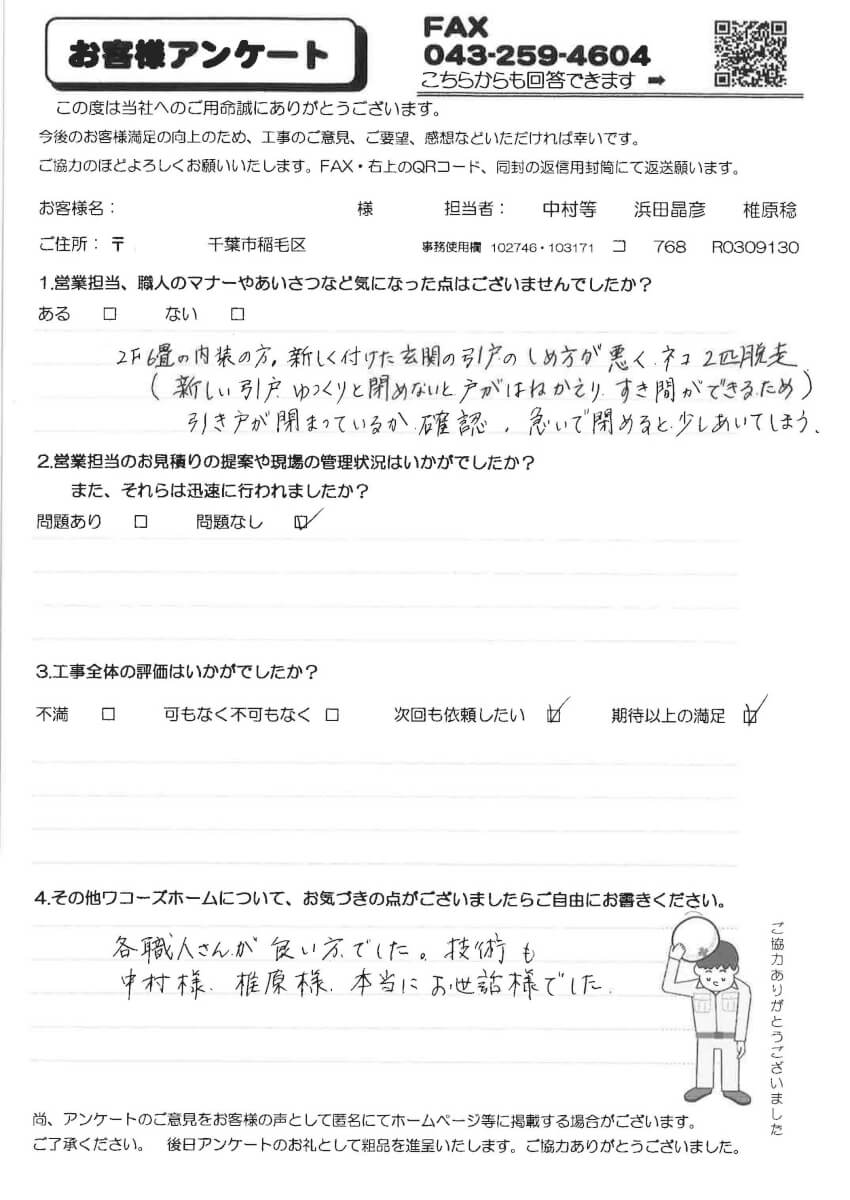 お客様アンケート
FAX
043-259-4604
こちらからも回答できます ➡
この度は当社へのご用命誠にありがとうございます。
今後のお客様満足の向上のため、工事のご意見、ご要望、感想などいただければ幸いです。
ご協力のほどよろしくお願いいたします。FAX・右上のQRコード、同封の返信用封筒にて返送願います。
お客様名： 様 担当者： 中村等 浜田晶彦 椎原稔
ご住所：〒 千葉市稲毛区 事務使用欄 102746・103171 コ 768 R0309130
1.営業担当、職人のマナーやあいさつなど気になった点はございませんでしたか？
ある □ ない □
2F6畳の内装の方、新しく付けた玄関の引戸のしめ方が悪く、ネコ2匹脱走
（新しい引戸、ゆっくりと閉めないと戸がはねかえり、すき間ができるため）
引き戸が閉まっているか、確認、急いで閉めると少しあいてしまう、
2.営業担当のお見積りの提案や現場の管理状況はいかがでしたか？
また、それらは迅速に行われましたか？
問題あり □ 問題なし ☑
3.工事全体の評価はいかがでしたか？
不満 □ 可もなく不可もなく □ 次回も依頼したい ☑ 期待以上の満足 ☑
4.その他ワコーズホームについて、お気づきの点がございましたらご自由にお書きください。
各職人さんが良い方でした。技術も
中村様、椎原様、本当にお世話様でした。
ご協力ありがとうございました
尚、アンケートのご意見をお客様の声として匿名にてホームページ等に掲載する場合がございます。
ご了承ください。 後日アンケートのお礼として粗品を進呈いたします。ご協力ありがとうございました。